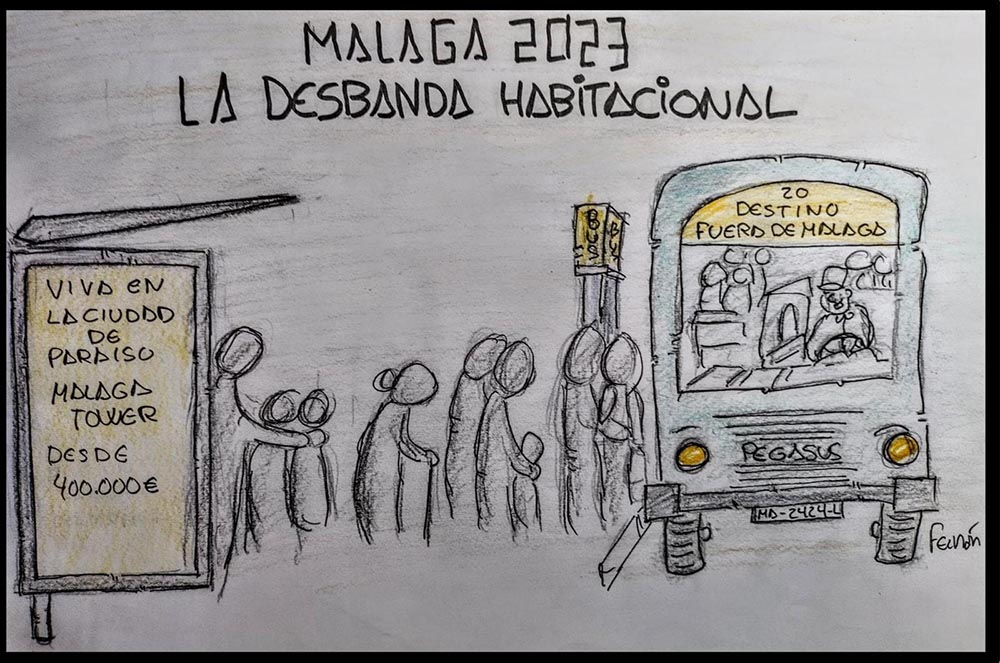 MALAGA 2023
LA DESBANDA HABITACIONAL
VIVA EN
LA CIUDAD
DE
PARAISO
MALAGA
TOWER
DESDE
400.000€
BUS
BU
20
DESTINO
FUERA DE MALAGA
PEGASUS
MA-2424-L